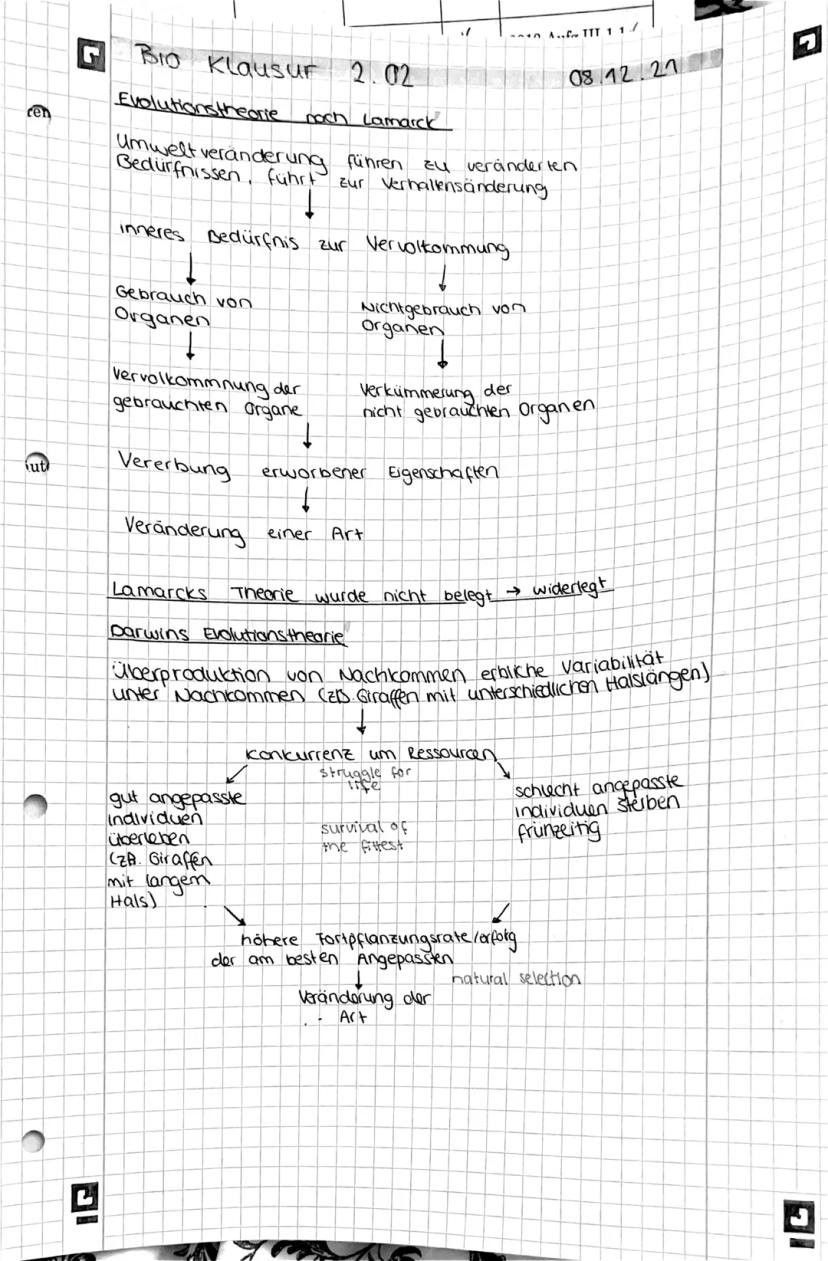 Bio Klausur 2.02 08.12.21
Evolutionstheorie nach Lamarck
ren
Umweltveränderung führen zu veränderten
Bedürfnissen, führt zur Verhaltensänderung
↓
inneres Bedürfnis zur Vervolkommung
↓ ↓
Gebrauch von Nichtgebrauch von
Organen Organen
↓ ↓
Vervolkommnung der Verkümmerung der
gebrauchten Organe nicht gebrauchten Organen
↓
Vererbung erworbener Eigenschaften
↓
Veränderung einer Art
Lamarcks Theorie wurde nicht belegt → widerlegt
Darwins Evolutionstheorie
Überproduktion von Nachkommen erbliche Variabilität
unter Nachkommen (zB. Giraffen mit unterschiedlichen Halslängen)
↓
Konkurrenz um Ressourcen
struggle for
life
gut angepasste
individuen
überleben
(zB. Giraffen
mit langem
Hals)
survival of
the fittest
schlecht angepasste
individuen sterben
frühzeitig
höhere Fortpflanzungsrate/erfolg
der am besten Angepassten
↓
natural selection
Veränderung der
Art